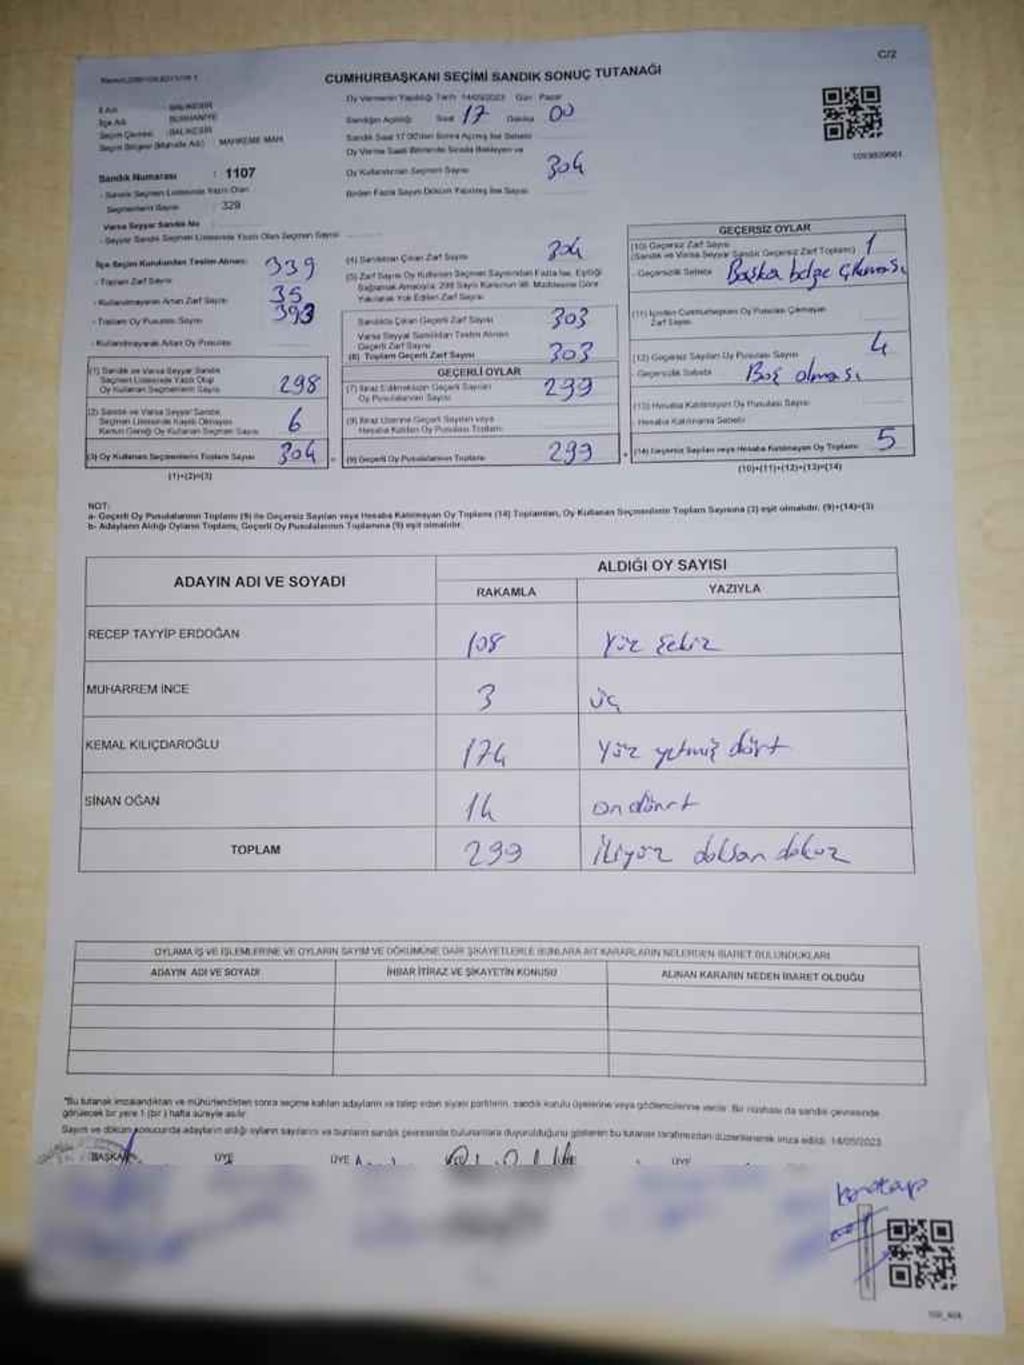 C/2
CUMHURBAŞKANI SEÇİMİ SANDIK SONUÇ TUTANAĞI
İl Adı : BALIKESİR
İlçe Adı : BURHANİYE
Seçim Çevresi : BALIKESİR
Seçim Bölgesi (Mahalle Adı) : MAHKEME MAH.
Sandık Numarası : 1107
- Sandık Seçmen Listesinde Yazılı Olan
Seçmenlerin Sayısı : 329
Varsa Seyyar Sandık No
- Seyyar Sandık Seçmen Listesinde Yazılı Olan Seçmen Sayısı
Oy Vermenin Yapıldığı Tarih 14/05/2023 Gün : Pazar
Sandığın Açıldığı Saat 17 Dakika 00
Sandık Saat 17.00'den Sonra Açılmış İse Sebebi
Oy Verme Saati Bitiminde Sırada Bekleyen ve
Oy Kullandırılan Seçmen Sayısı 304
Birden Fazla Sayım Döküm Yapılmış İse Sayısı
İlçe Seçim Kurulundan Teslim Alınan:
- Toplam Zarf Sayısı 339
- Kullanılmayarak Artan Zarf Sayısı 35
- Toplam Oy Pusulası Sayısı 393
- Kullanılmayarak Artan Oy Pusulası
(1) Sandık ve Varsa Seyyar Sandık
Seçmen Listesinde Yazılı Olup
Oy Kullanan Seçmenlerin Sayısı 298
(2) Sandık ve Varsa Seyyar Sandık
Seçmen Listesinde Kayıtlı Olmayan
Kanun Gereği Oy Kullanan Seçmen Sayısı 6
(3) Oy Kullanan Seçmenlerin Toplam Sayısı 304
(1)+(2)=(3)
(4) Sandıktan Çıkan Zarf Sayısı 304
(5) Zarf Sayısı Oy Kullanan Seçmen Sayısından Fazla İse, Eşitliği
Sağlamak Amacıyla, 298 Sayılı Kanunun 98. Maddesine Göre
Yakılarak Yok Edilen Zarf Sayısı
Sandıkta Çıkan Geçerli Zarf Sayısı 303
Varsa Seyyar Sandıktan Teslim Alınan
Geçerli Zarf Sayısı
(6) Toplam Geçerli Zarf Sayısı 303
GEÇERLİ OYLAR
(7) İtiraz Edilmeksizin Geçerli Sayılan
Oy Pusulalarının Sayısı 299
(8) İtiraz Üzerine Geçerli Sayılan veya
Hesaba Katılan Oy Pusulası Toplamı
(9) Geçerli Oy Pusulalarının Toplamı 299
GEÇERSİZ OYLAR
(10) Geçersiz Zarf Sayısı
(Sandık ve Varsa Seyyar Sandık Geçersiz Zarf Toplamı) 1
- Geçersizlik Sebebi Başka belge çıkması
(11) İçinden Cumhurbaşkanı Oy Pusulası Çıkmayan
Zarf Sayısı
(12) Geçersiz Sayılan Oy Pusulası Sayısı 4
Geçersizlik Sebebi Boş olması
(13) Hesaba Katılmayan Oy Pusulası Sayısı
- Hesaba Katılmama Sebebi
(14) Geçersiz Sayılan veya Hesaba Katılmayan Oy Toplamı 5
(10)+(11)+(12)+(13)=(14)
NOT:
a- Geçerli Oy Pusulalarının Toplamı (9) ile Geçersiz Sayılan veya Hesaba Katılmayan Oy Toplamı (14) Toplamları, Oy Kullanan Seçmenlerin Toplam Sayısına (3) eşit olmalıdır. (9)+(14)=(3)
b- Adayların Aldığı Oyların Toplamı, Geçerli Oy Pusulalarının Toplamına (9) eşit olmalıdır.
ADAYIN ADI VE SOYADI
ALDIĞI OY SAYISI
RAKAMLA YAZIYLA
RECEP TAYYİP ERDOĞAN 108 Yüz Sekiz
MUHARREM İNCE 3 üç
KEMAL KILIÇDAROĞLU 174 Yüz yetmiş dört
SİNAN OĞAN 14 ondört
TOPLAM 299 İkiyüz doksan dokuz
OYLAMA İŞ VE İŞLEMLERİNE VE OYLARIN SAYIM VE DÖKÜMÜNE DAİR ŞİKAYETLERLE BUNLARA AİT KARARLARIN NELERDEN İBARET BULUNDUKLARI
ADAYIN ADI VE SOYADI İHBAR İTİRAZ VE ŞİKAYETİN KONUSU ALINAN KARARIN NEDEN İBARET OLDUĞU
"Bu tutanak imzalandıktan ve mühürlendikten sonra seçime katılan adayların ve talep eden siyasi partilerin, sandık kurulu üyelerine veya gözlemcilerine verilir. Bir nüshası da sandık çevresinde
görülecek bir yere 1 (bir) hafta süreyle asılır.
Sayım ve döküm sonucunda adayların aldığı oyların sayılarını ve bunların sandık çevresinde bulunanlara duyurulduğunu gösteren bu tutanak tarafımızdan düzenlenerek imza edildi. 14/05/2023
BAŞKAN ÜYE ÜYE ÜYE